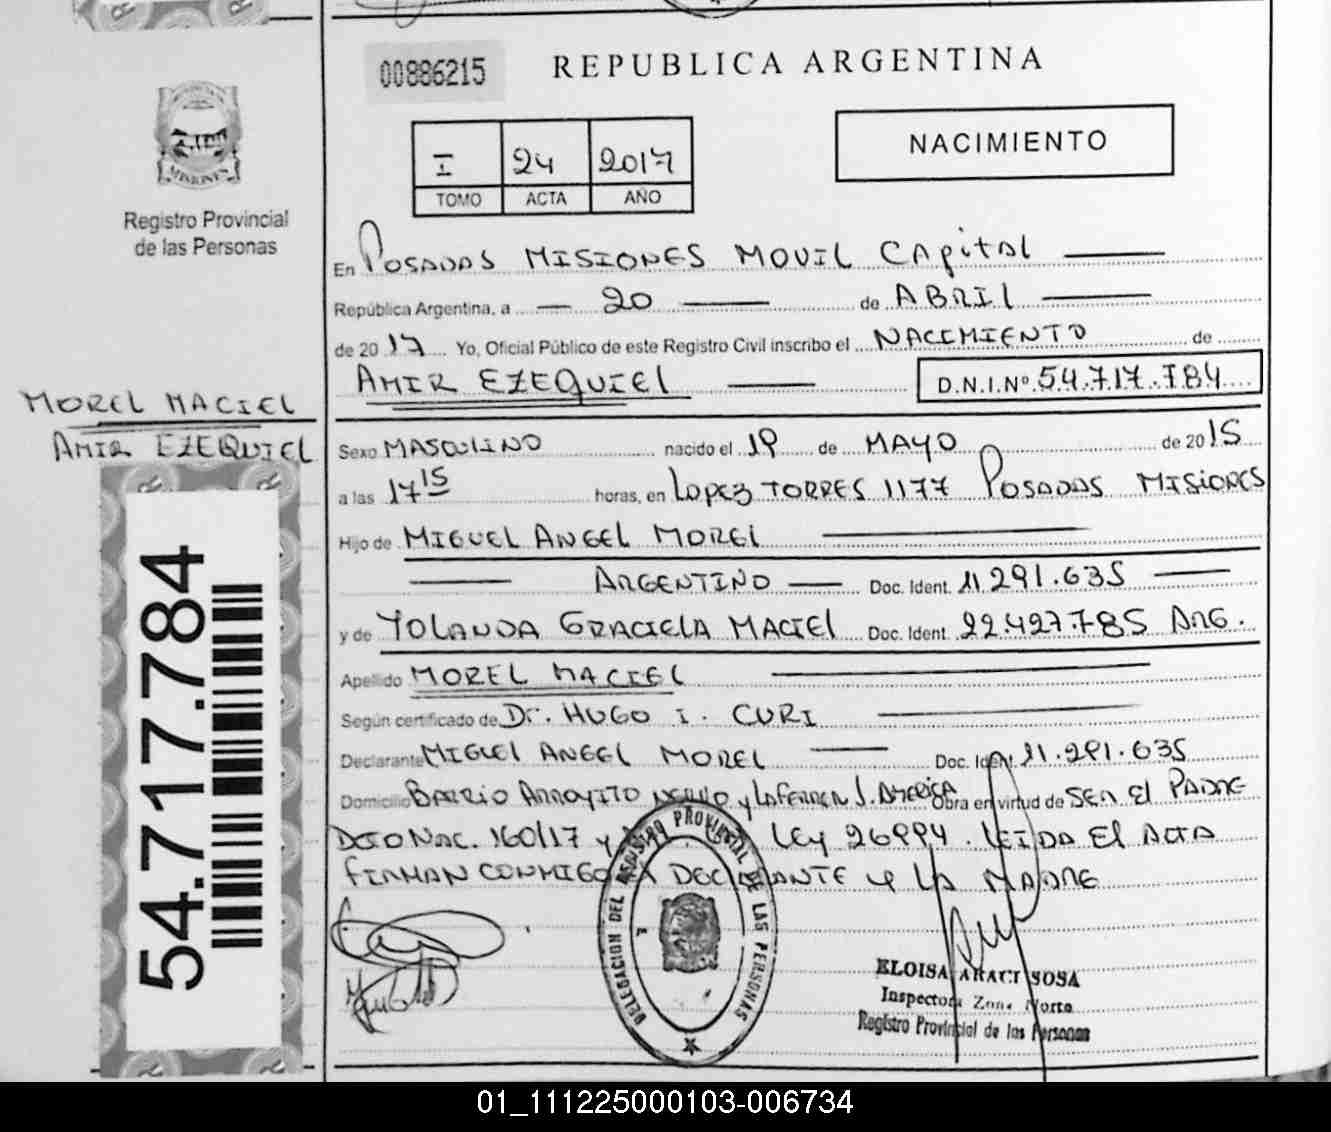 00886215
REPUBLICA ARGENTINA
NACIMIENTO
I 24 2017
TOMO ACTA AÑO
MISIONES
Registro Provincial
de las Personas
En POSADAS MISIONES MOVIL CAPITAL
República Argentina, a 20 de ABRIL
de 2017 Yo, Oficial Público de este Registro Civil inscribo el NACIMIENTO de
AMIR EZEQUIEL D.N.I.Nº 54.717.784
MOREL MACIEL
AMIR EZEQUIEL
Sexo MASCULINO nacido el 19 de MAYO de 2015
a las 17 15 horas, en LOPEZ TORRES 1177 POSADAS MISIONES
Hijo de MIGUEL ANGEL MOREL
ARGENTINO Doc. Ident. 11.291.635
y de YOLANDA GRACIELA MACIEL Doc. Ident. 22.427.785 ARG.
Apellido MOREL MACIEL
Según certificado de Dr. HUGO I. CURI
Declarante MIGUEL ANGEL MOREL Doc. Ident. 11.291.635
Domicilio BARRIO ARROYITO y Obra en virtud de SER EL PADRE
DCTO NAC. 160/17 y LEY 26994. LEIDA EL ACTA
FIRMAN CONMIGO DECLARANTE y LA MADRE
54.717.784
DELEGACION DEL REGISTRO PROVINCIAL DE LAS PERSONAS
ELOISA ARACI SOSA
Inspectora Zona Norte
Registro Provincial de las Personas
01_111225000103-006734